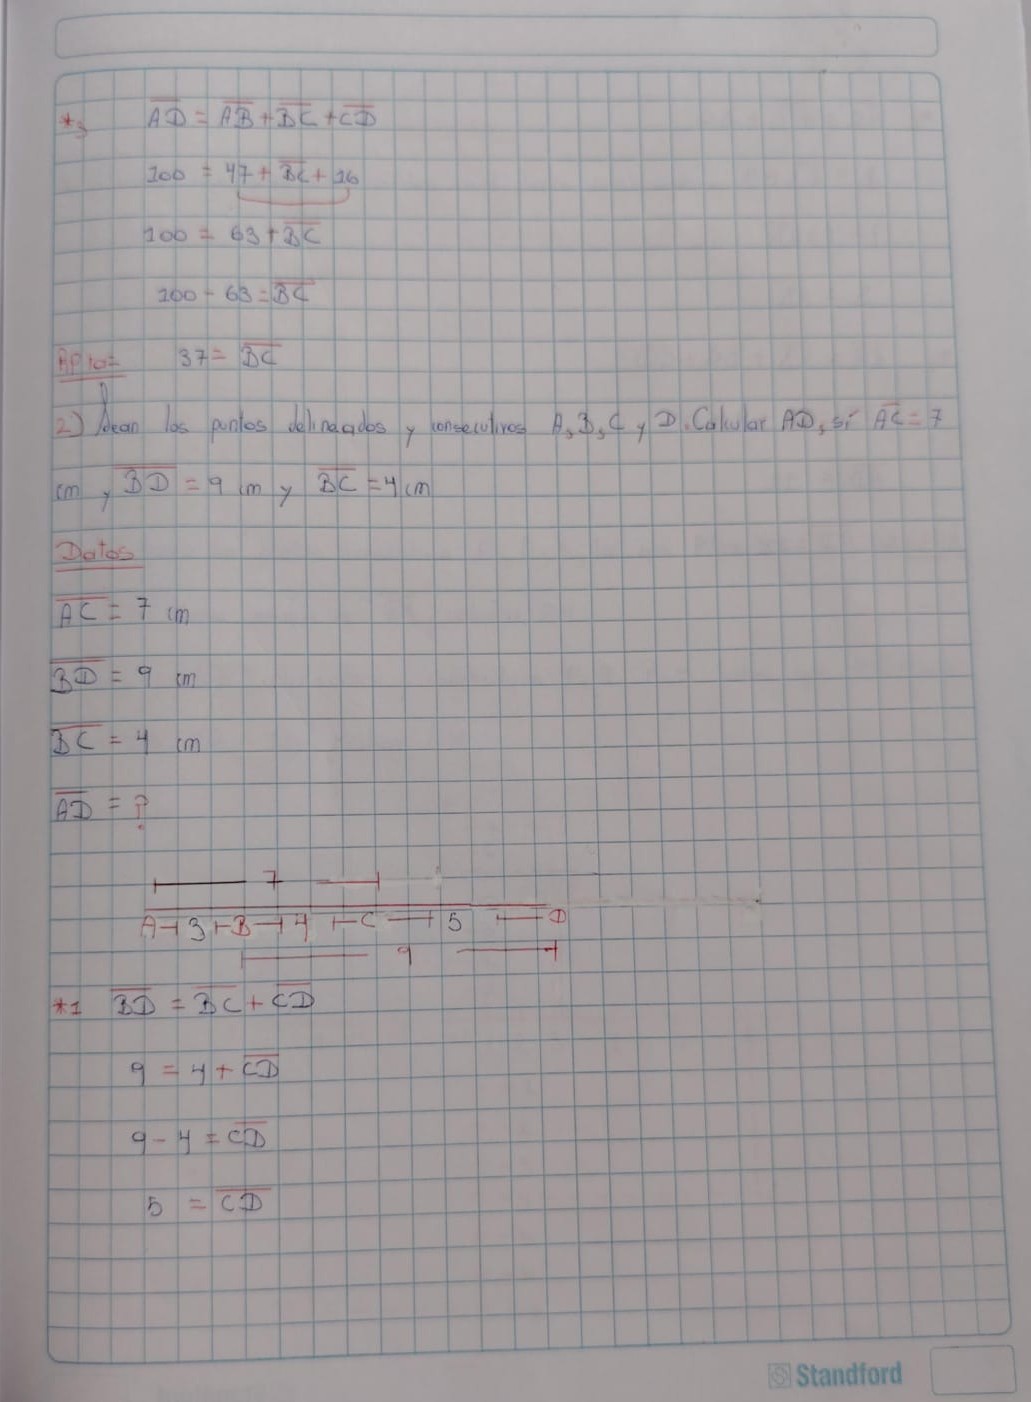 *3 AD = AB + BC + CD
100 = 47 + BC + 16
100 = 63 + BC
100 - 63 = BC
Rpta= 37 = BC
2) Sean los puntos delineados y consecutivos A, B, C y D. Calcular AD, si AC = 7
cm y BD = 9 cm y BC = 4 cm
Datos
AC = 7 cm
BD = 9 cm
BC = 4 cm
AD = ?
7
A 3 B 4 C 5 D
9
*1 BD = BC + CD
9 = 4 + CD
9 - 4 = CD
5 = CD
Standford